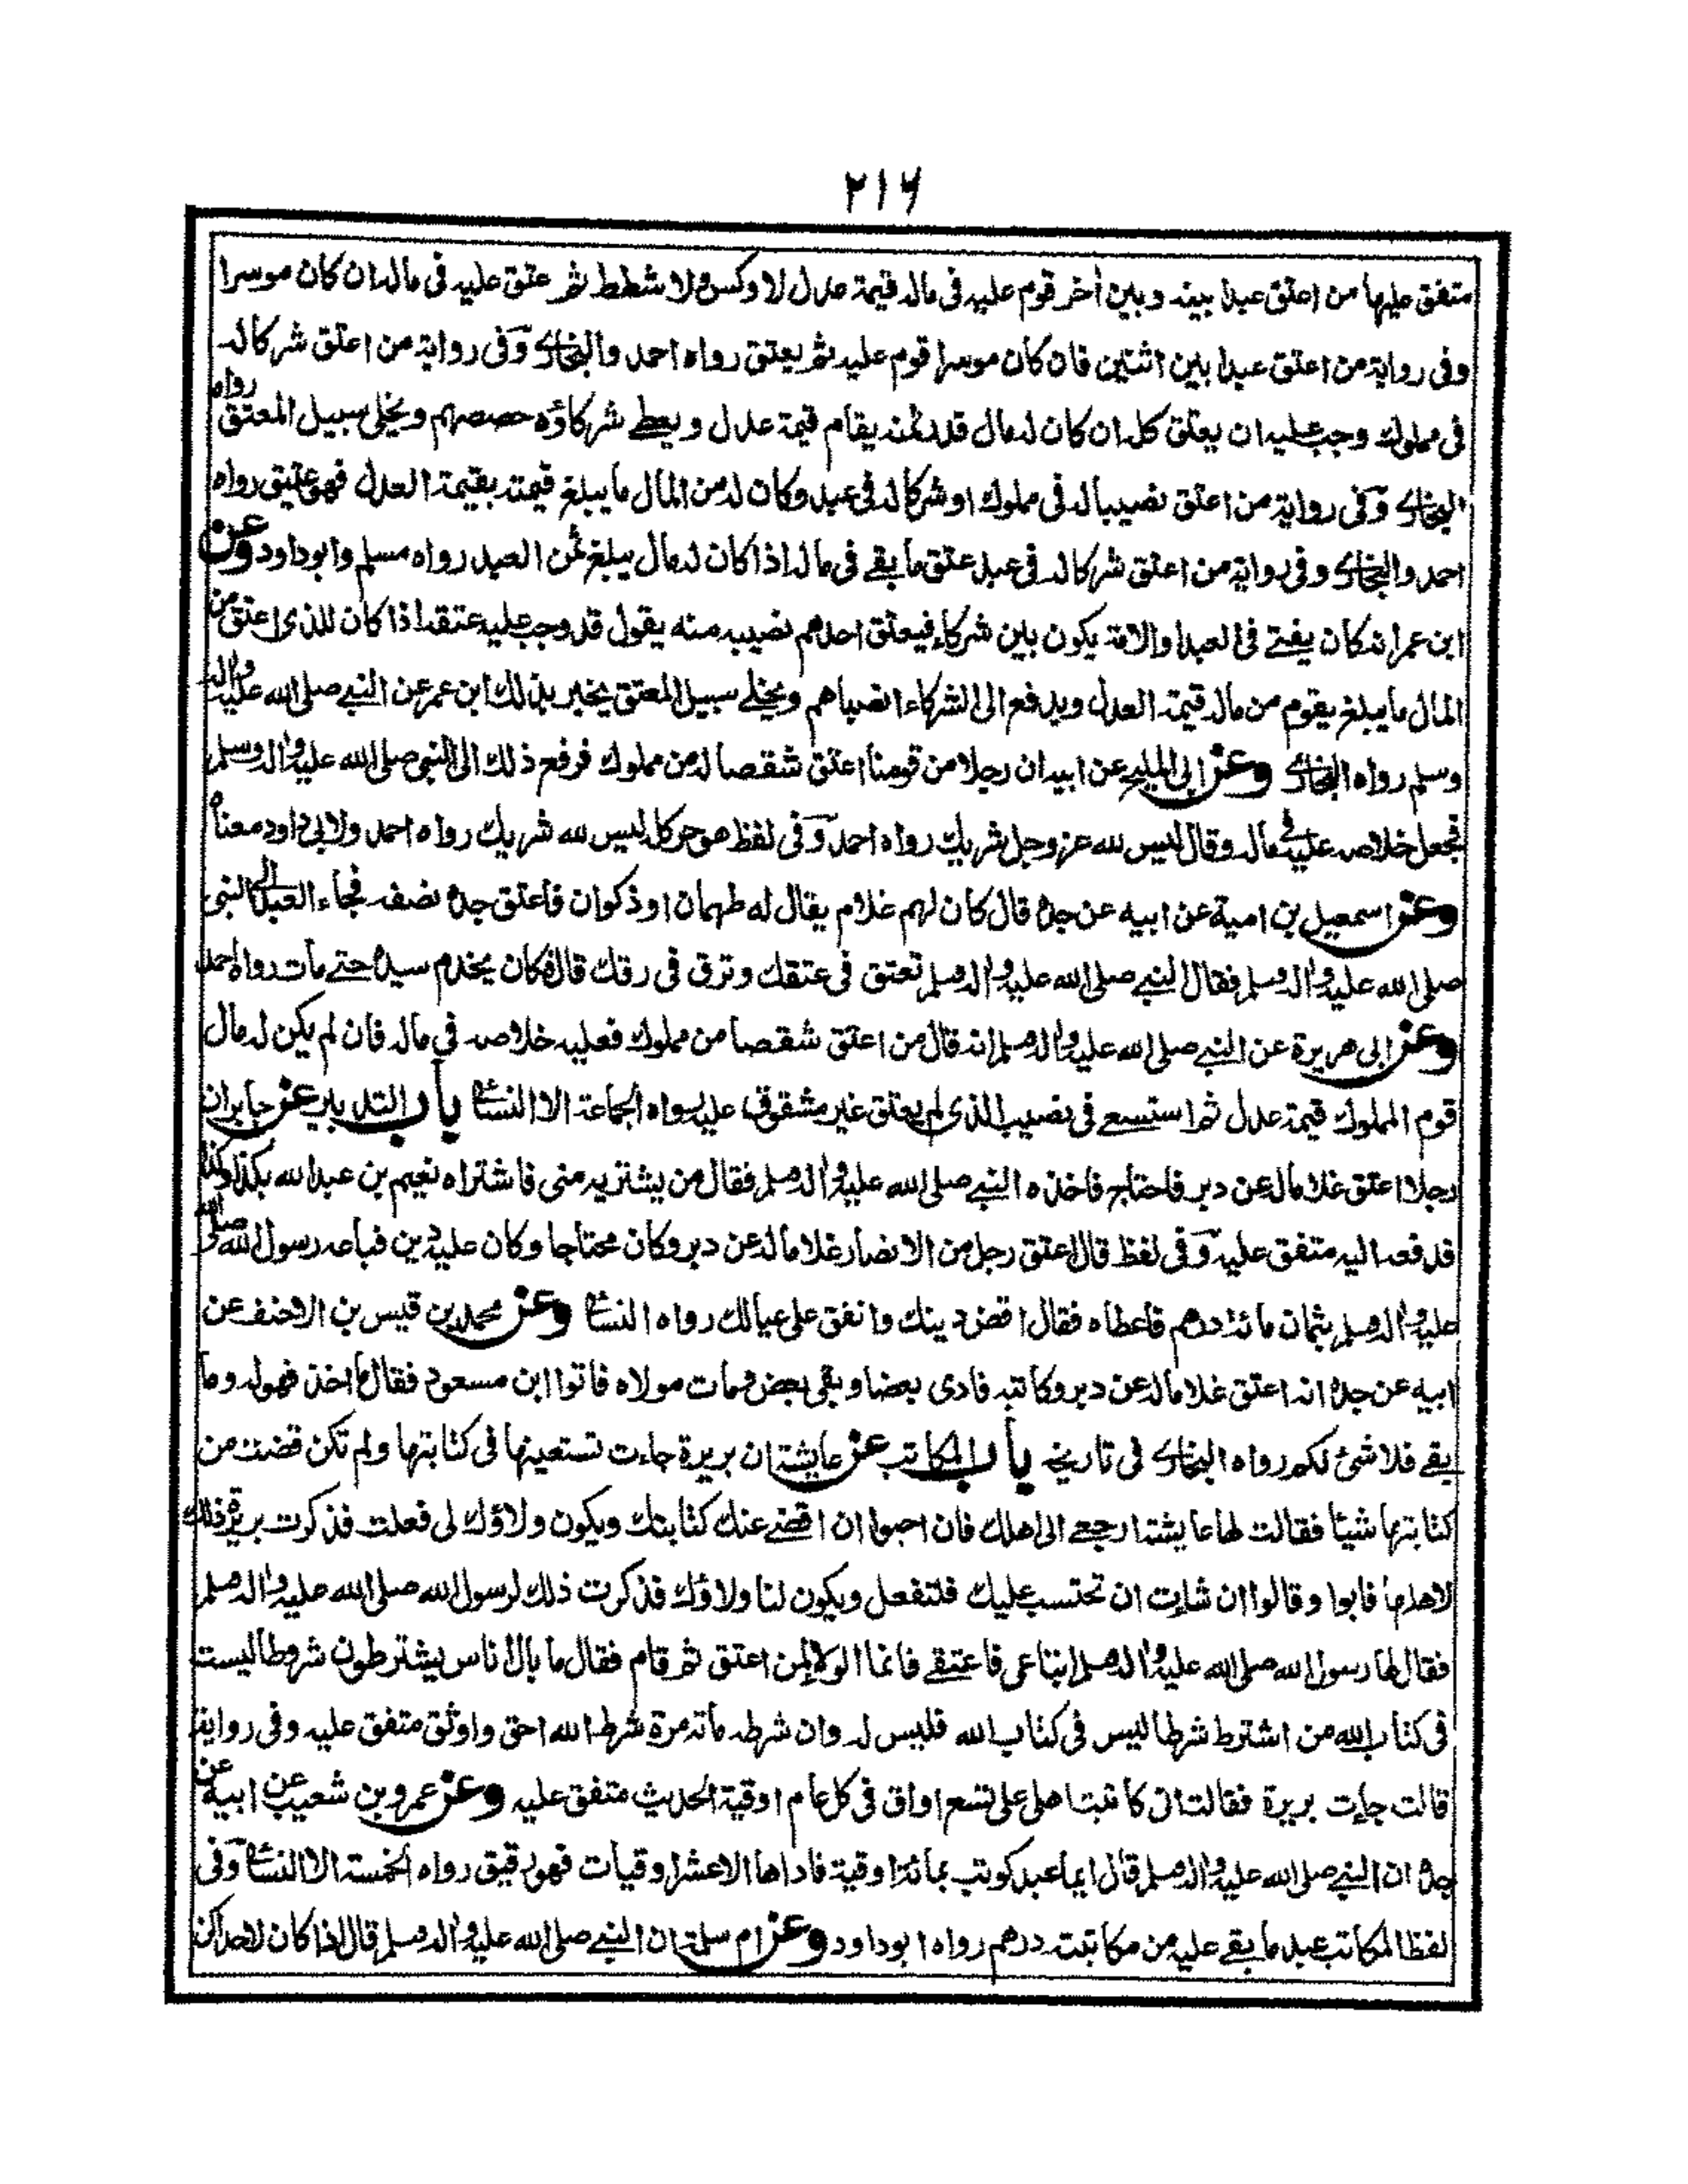 ٢١٦
متفق عليها من اعتق عبدا بينه وبين أخر قوم عليه في ماله قيمة عدل لا وكس ولا شطط ثم عتق عليه في ماله ان كان موسرا
وفى رواية من اعتق عبدا بين اثنين فان كان موسرا قوم عليه ثم يعتق رواه احمد والبخارى وفى رواية من اعتق شركا له
فى مملوك وجب عليه ان يعتق كله ان كان له مال قدر ثمنه يقام قيمة عدل ويعطى شركاؤه حصصهم ويخلى سبيل المعتق رواه
البخارى وفى رواية من اعتق نصيبا له فى مملوك او شركا له فى عبد وكان له من المال ما يبلغ قيمته بقيمة العدل فهو عتيق رواه
احمد والبخارى وفى رواية من اعتق شركا له فى عبد عتق ما بقى فى ماله اذا كان له مال يبلغ ثمن العبد رواه مسلم وابو داود وعن
ابن عمر انه كان يفتى فى العبد والامة يكون بين شركاء فيعتق احدهم نصيبه منه يقول قد وجب عليه عتقه اذا كان للذى اعتق من
المال ما يبلغ يقوم من ماله قيمة العدل ويدفع الى الشركاء انصباهم ويخلى سبيل المعتق يخبر بذلك ابن عمر عن النبى صلى الله عليه واله
وسلم رواه البخارى وعن ابى المليح عن ابيه ان رجلا من قومنا اعتق شقصا له من مملوك فرفع ذلك الى النبى صلى الله عليه واله وسلم
فجعل خلاصه عليه فى ماله وقال ليس لله عز وجل شريك رواه احمد وفى لفظ هو حر كله ليس لله شريك رواه احمد ولابى داود معناه
وعن اسمعيل بن امية عن ابيه عن جده قال كان لهم غلام يقال له طهمان او ذكوان فاعتق جده نصفه فجاء العبد الى النبى
صلى الله عليه واله وسلم فقال النبى صلى الله عليه واله وسلم تعتق فى عتقك وترق فى رقك قال فكان يخدم سيده حتى مات رواه احمد
وعن ابى هريرة عن النبى صلى الله عليه واله وسلم انه قال من اعتق شقصا من مملوك فعليه خلاصه فى ماله فان لم يكن له مال
قوم المملوك قيمة عدل ثم استسعى فى نصيب الذى لم يعتق غير مشقوق عليه رواه الجماعة الا النسائى باب التدبير عن جابر ان
رجلا اعتق غلاما له عن دبر فاحتاج فاخذه النبى صلى الله عليه واله وسلم فقال من يشتريه منى فاشتراه نعيم بن عبد الله بكذا وكذا
فدفعه اليه متفق عليه وفى لفظ قال اعتق رجل من الانصار غلاما له عن دبر وكان محتاجا وكان عليه دين فباعه رسول الله صلى الله
عليه واله وسلم بثمان مائة درهم فاعطاه فقال اقض دينك وانفق على عيالك رواه النسائى وعن محمد بن قيس بن الاحنف عن
ابيه عن جده انه اعتق غلاما له عن دبر وكاتبه فادى بعضا وبقى بعض ومات مولاه فاتوا ابن مسعود فقال ما اخذ فهو له وما
بقى فلا شئ لكم رواه البخارى فى تاريخه باب المكاتب عن عايشة ان بريرة جاءت تستعينها فى كتابتها ولم تكن قضت من
كتابتها شيئا فقالت لها عايشة ارجعى الى اهلك فان احبوا ان اقضى عنك كتابتك ويكون ولاؤك لى فعلت فذكرت بريرة ذلك
لاهلها فابوا وقالوا ان شاءت ان تحتسب عليك فلتفعل ويكون لنا ولاؤك فذكرت ذلك لرسول الله صلى الله عليه واله وسلم
فقال لها رسول الله صلى الله عليه واله وسلم ابتاعى فاعتقى فانما الولاء لمن اعتق ثم قام فقال ما بال اناس يشترطون شروطا ليست
فى كتاب الله من اشترط شرطا ليس فى كتاب الله فليس له وان شرطه مائة مرة شرط الله احق واوثق متفق عليه وفى رواية
قالت جاءت بريرة فقالت انى كاتبت اهلى على تسع اواق فى كل عام اوقية الحديث متفق عليه وعن عمرو بن شعيب عن ابيه عن
جده ان النبى صلى الله عليه واله وسلم قال ايما عبد كوتب بمائة اوقية فاداها الا عشر اوقيات فهو رقيق رواه الخمسة الا النسائى وفى
لفظ المكاتب عبد ما بقى عليه من مكاتبته درهم رواه ابو داود وعن ام سلمة ان النبى صلى الله عليه واله وسلم قال اذا كان لاحداكن